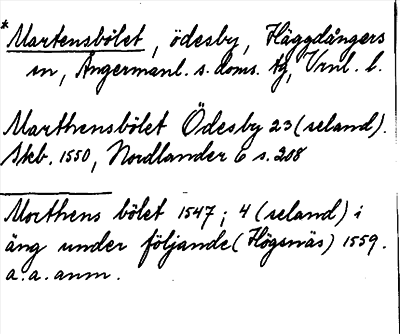 *Martensbölet, ödesby, Häggdångers
sn, Ångermanl. s. doms. tg, Vrnl. l.
Marthensbölet Ödesby 23 (seland).
Skb. 1550, Nordlander 6 s. 208
Morthens bölet 1547; 4 (seland) i
äng under följande (Högsnäs) 1559.
a. a. anm.